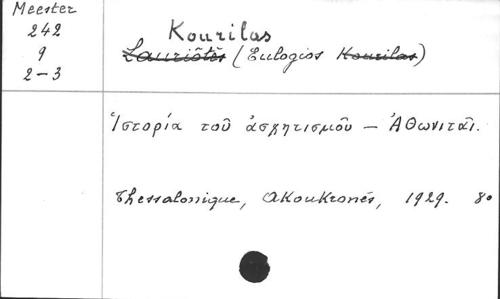 Meester
242
9
2-3
Kourilas
Lauriôtès (Eulogios Kourilas)
Ἱστορία τοῦ ἀσκητισμοῦ - Ἀθωνιταῖ.
Thessalonique, Akoukronés, 1929. 8°